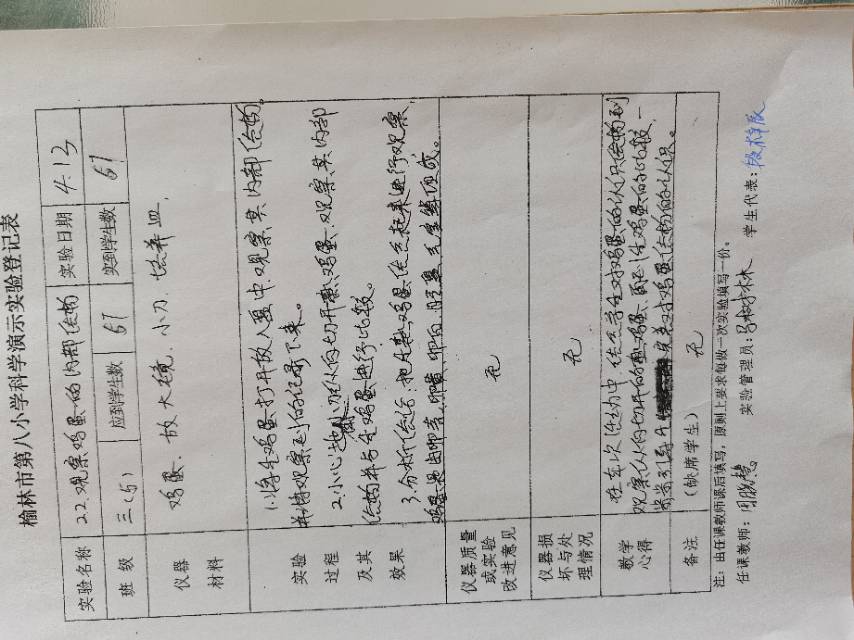 榆林市第八小学科学演示实验登记表
实验名称 22.观察鸡蛋的内部结构 实验日期 4.13
班 级 三(5) 应到学生数 61 实到学生数 61
仪器材料 鸡蛋、放大镜、小刀、培养皿、
实验过程及其效果
1.将生鸡蛋打开放入皿中,观察其内部结构,
并将观察到的记录下来。
2.小心地 切开熟鸡蛋,观察其内部
结构并与生鸡蛋进行比较。
3.分析总结:把生熟鸡蛋结合起来进行观察,
鸡蛋是由卵壳、卵黄、卵白、胚 气室等组成。
仪器质量或实验改进意见 无
仪器损坏与处理情况 无
教学心得
在本次活动中,结合学生对鸡蛋的认识
观察 切开的熟鸡蛋, 生鸡蛋的比较,
对鸡蛋结构的认识。
备注 (缺席学生) 无
注:由任课教师课后填写,原则上要求每做一次实验填写一份。
任课教师: 实验管理员: 学生代表: